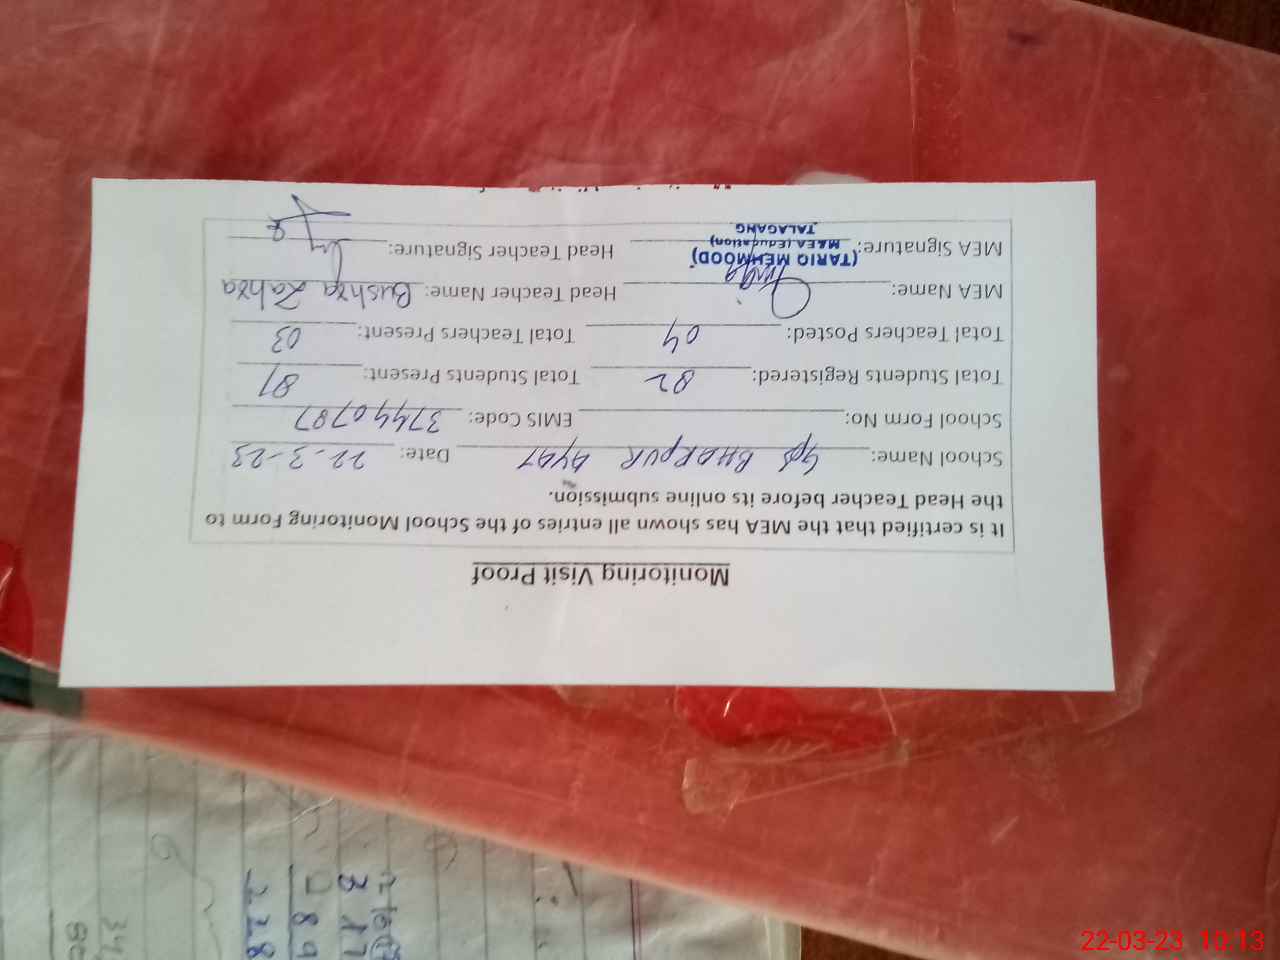 Monitoring Visit Proof
It is certified that the MEA has shown all entries of the School Monitoring Form to
the Head Teacher before its online submission.
School Name: GPS BHARPUR AYAT Date: 22-3-23
School Form No: EMIS Code: 37440787
Total Students Registered: 82 Total Students Present: 81
Total Teachers Posted: 04 Total Teachers Present: 03
MEA Name: Head Teacher Name: Bushra Zahra
(TARIQ MEHMOOD)
M&EA (Education)
TALAGANG
MEA Signature: Head Teacher Signature:
22-03-23 10:13